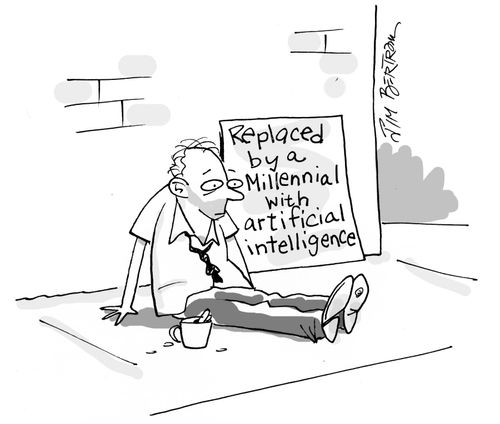 Replaced
by a
Millennial
with
artificial
intelligence
JIM BERTRAM